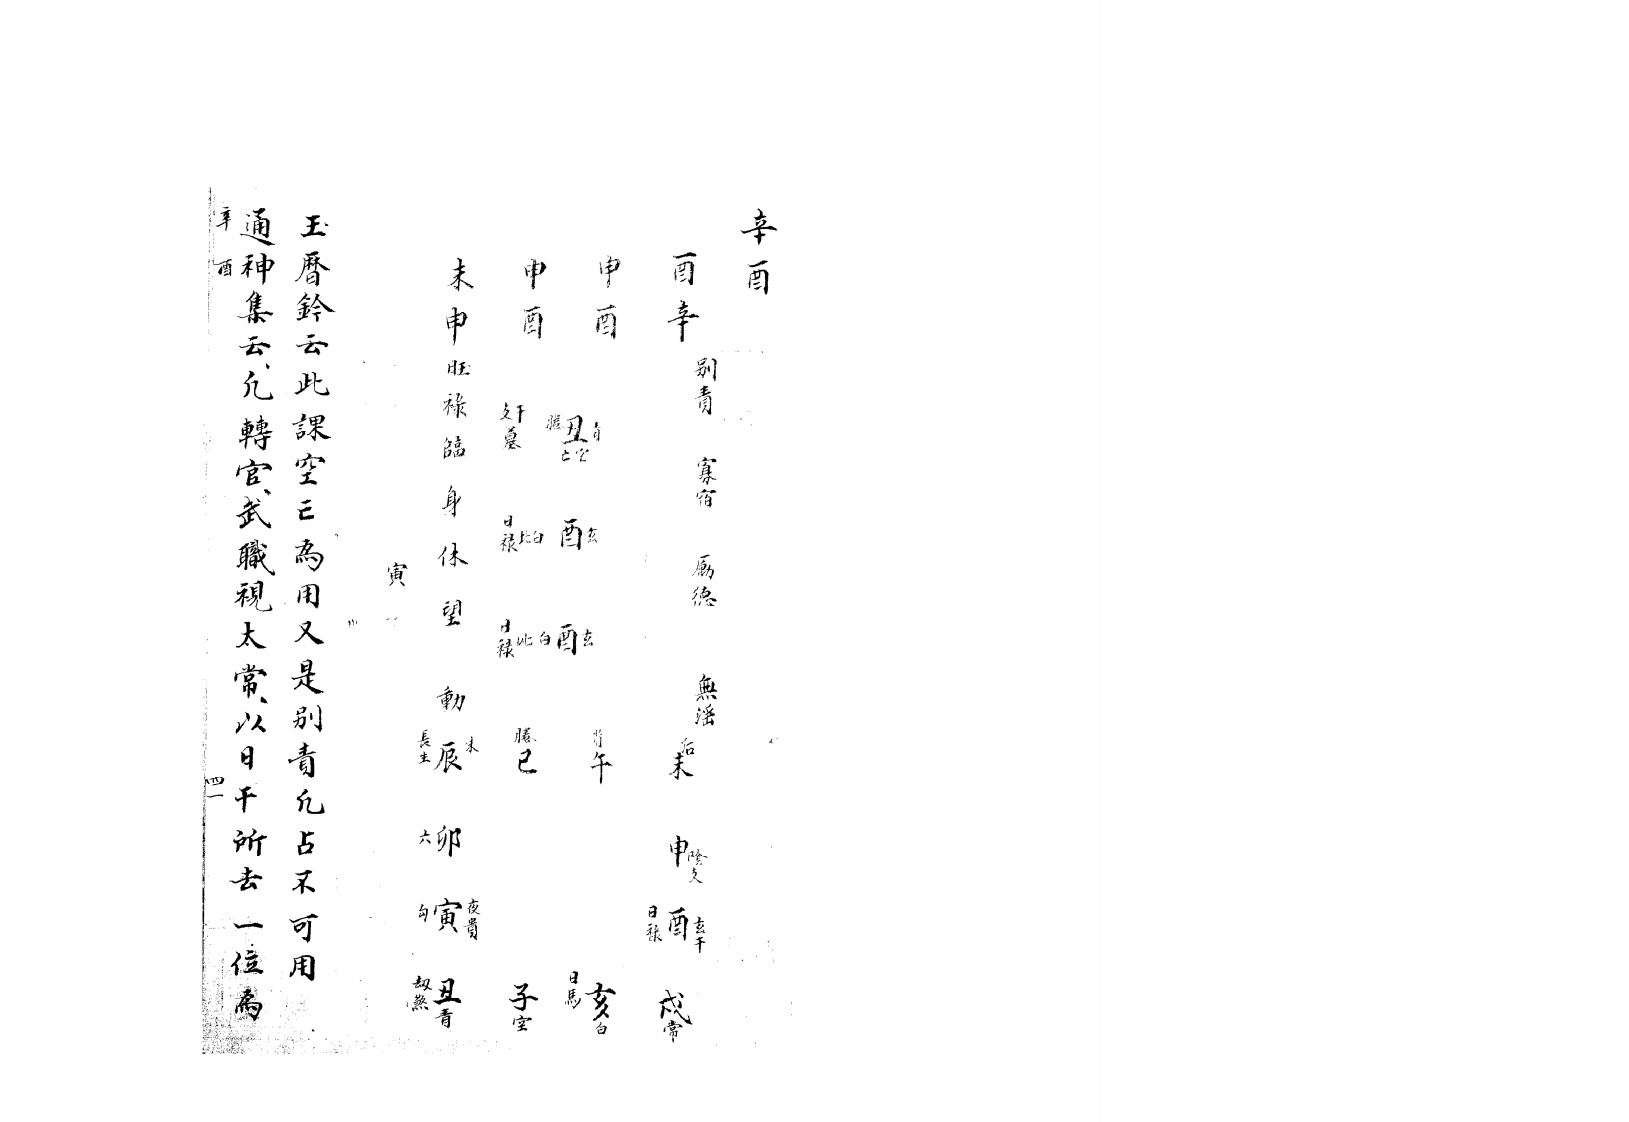 辛酉
別責 寡宿 厲德 無淫
酉辛
后未 申陰支 日祿酉玄干 戌常
申酉
丑青空亡
酉玄
酉玄
午 日馬亥白
申酉
干支墓
日祿比白
日祿比白
螣巳 子空
未申
旺祿臨身休望動
長生辰朱 六卯 勾寅夜貴 劫煞丑青
寅
玉曆鈐云此課空亡為用又是別責凡占不可用
通神集云、凡轉官、武職視太常、以日干所去一位為
辛酉 四一